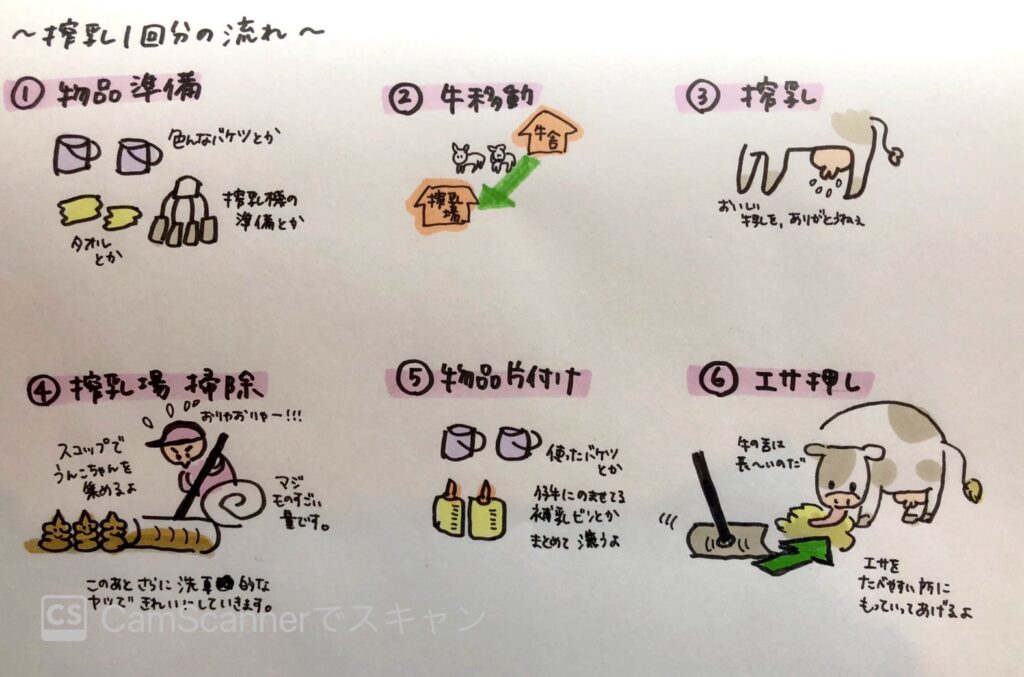 ～搾乳1回分の流れ～
① 物品準備
色んなバケツとか
タオル
とか
搾乳機の
準備とか
② 牛移動
牛舎
搾乳
場
③ 搾乳
おいしい
牛乳を、ありがとうねぇ
④ 搾乳場 掃除
おりゃおりゃー!!!
スコップで
うんこちゃんを
集めるよ
マジ
ものすごい
量です。
このあとさらに洗車 的な
ヤツできれいにしていきます。
⑤ 物品片付け
使ったバケツ
とか
仔牛にのませてる
補乳ビンとか
まとめて洗うよ
⑥ エサ押し
牛の舌は
長〜いのだ
エサを
たべやすい所に
もっていってあげるよ
CS CamScannerでスキャン